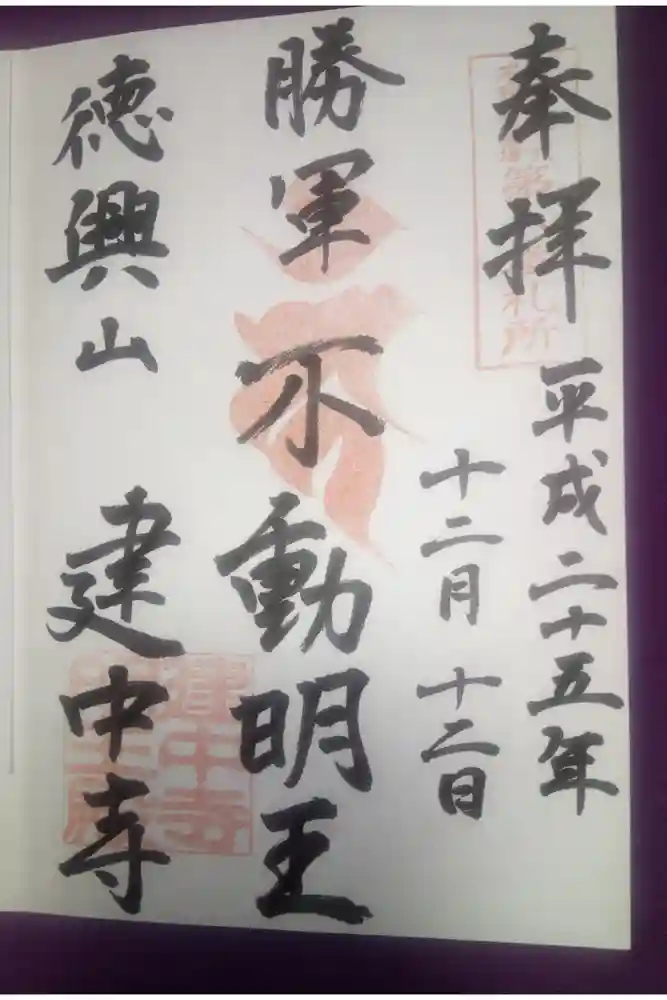 奉拝
平成二十五年
十二月十二日
勝軍不動明王
徳興山
建中寺